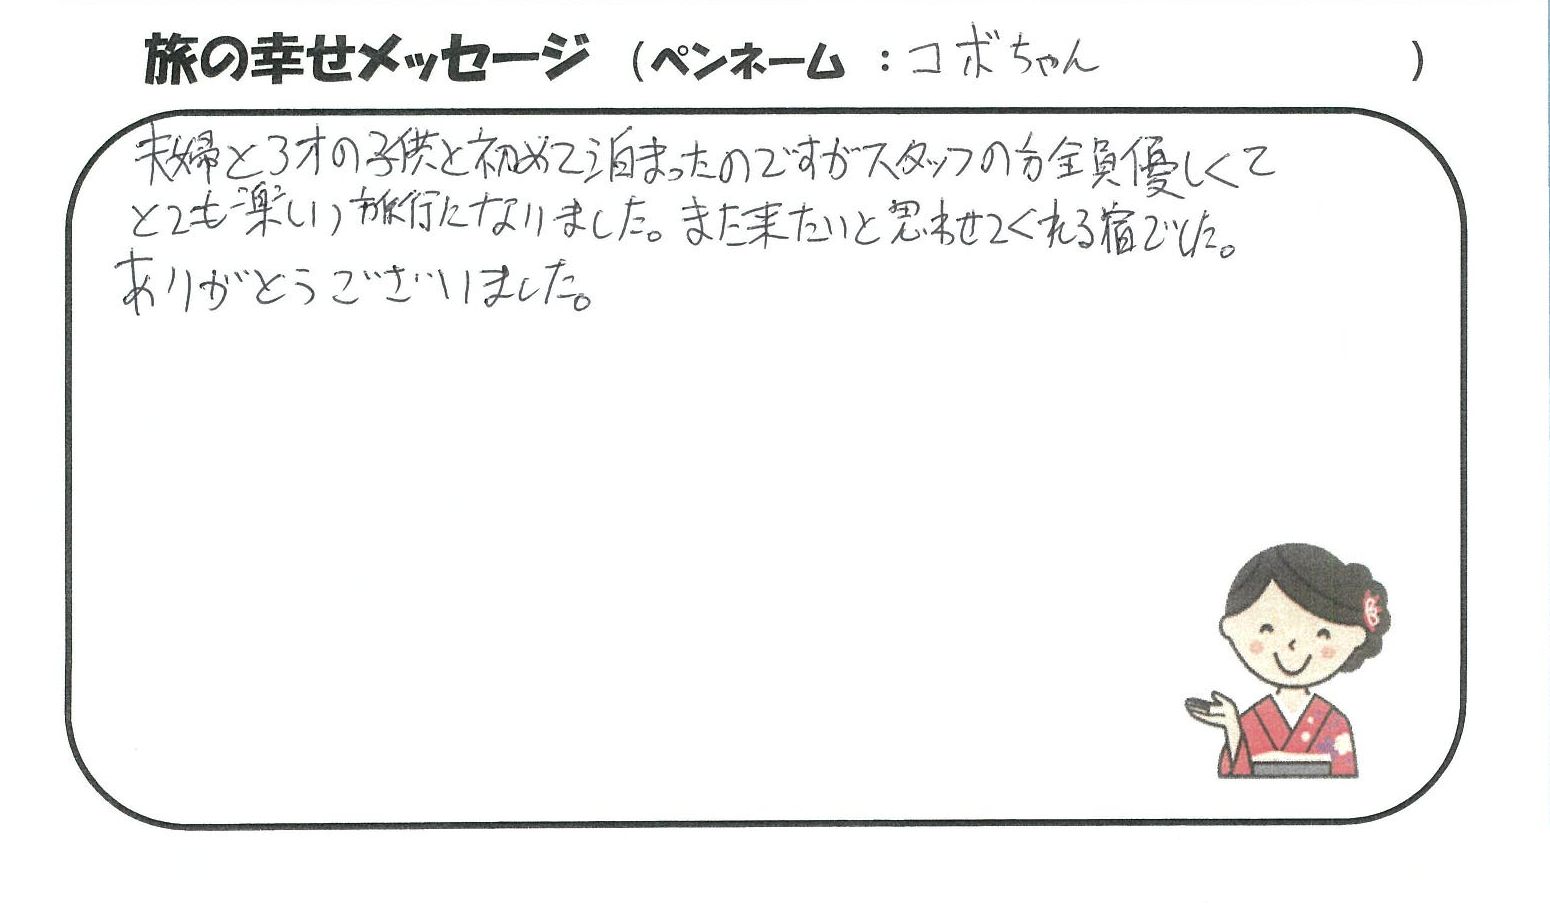 旅の幸せメッセージ (ペンネーム : コボちゃん )
夫婦と3才の子供と初めて泊まったのですがスタッフの方全員優しくて
とても楽しい旅行になりました。また来たいと思わせてくれる宿でした。
ありがとうございました。